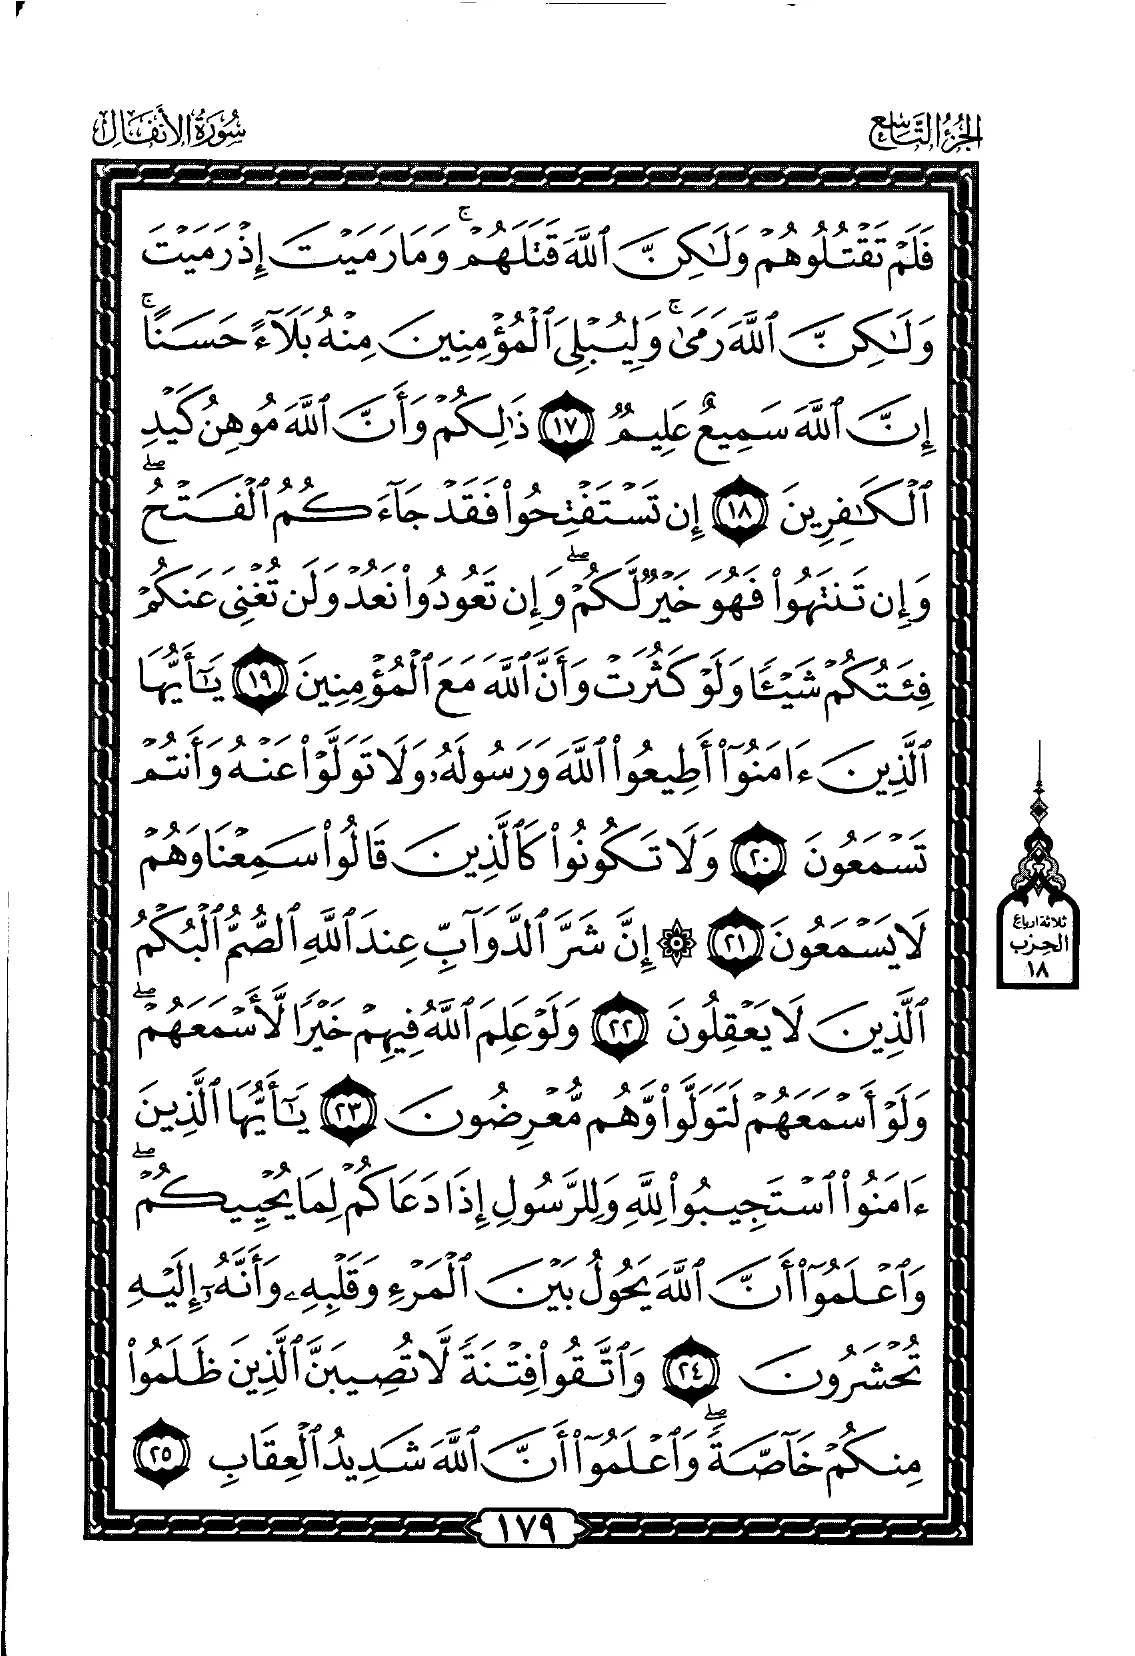 الجزء التاسع
سورة الأنفال
فَلَمْ تَقْتُلُوهُمْ وَلَٰكِنَّ ٱللَّهَ قَتَلَهُمْ ۚ وَمَا رَمَيْتَ إِذْ رَمَيْتَ
وَلَٰكِنَّ ٱللَّهَ رَمَىٰ ۚ وَلِيُبْلِىَ ٱلْمُؤْمِنِينَ مِنْهُ بَلَآءً حَسَنًا ۚ
إِنَّ ٱللَّهَ سَمِيعٌ عَلِيمٌ ١٧ ذَٰلِكُمْ وَأَنَّ ٱللَّهَ مُوهِنُ كَيْدِ
ٱلْكَٰفِرِينَ ١٨ إِن تَسْتَفْتِحُوا۟ فَقَدْ جَآءَكُمُ ٱلْفَتْحُ ۖ
وَإِن تَنتَهُوا۟ فَهُوَ خَيْرٌ لَّكُمْ ۖ وَإِن تَعُودُوا۟ نَعُدْ وَلَن تُغْنِىَ عَنكُمْ
فِئَتُكُمْ شَيْـًٔا وَلَوْ كَثُرَتْ وَأَنَّ ٱللَّهَ مَعَ ٱلْمُؤْمِنِينَ ١٩ يَٰٓأَيُّهَا
ٱلَّذِينَ ءَامَنُوٓا۟ أَطِيعُوا۟ ٱللَّهَ وَرَسُولَهُۥ وَلَا تَوَلَّوْا۟ عَنْهُ وَأَنتُمْ
تَسْمَعُونَ ٢٠ وَلَا تَكُونُوا۟ كَٱلَّذِينَ قَالُوا۟ سَمِعْنَا وَهُمْ
لَا يَسْمَعُونَ ٢١ ۞ إِنَّ شَرَّ ٱلدَّوَآبِّ عِندَ ٱللَّهِ ٱلصُّمُّ ٱلْبُكْمُ
ٱلَّذِينَ لَا يَعْقِلُونَ ٢٢ وَلَوْ عَلِمَ ٱللَّهُ فِيهِمْ خَيْرًا لَّأَسْمَعَهُمْ ۖ
وَلَوْ أَسْمَعَهُمْ لَتَوَلَّوا۟ وَّهُم مُّعْرِضُونَ ٢٣ يَٰٓأَيُّهَا ٱلَّذِينَ
ءَامَنُوا۟ ٱسْتَجِيبُوا۟ لِلَّهِ وَلِلرَّسُولِ إِذَا دَعَاكُمْ لِمَا يُحْيِيكُمْ ۖ
وَٱعْلَمُوٓا۟ أَنَّ ٱللَّهَ يَحُولُ بَيْنَ ٱلْمَرْءِ وَقَلْبِهِۦ وَأَنَّهُۥٓ إِلَيْهِ
تُحْشَرُونَ ٢٤ وَٱتَّقُوا۟ فِتْنَةً لَّا تُصِيبَنَّ ٱلَّذِينَ ظَلَمُوا۟
مِنكُمْ خَآصَّةً ۖ وَٱعْلَمُوٓا۟ أَنَّ ٱللَّهَ شَدِيدُ ٱلْعِقَابِ ٢٥
ثلاثة أرباع
الحزب
١٨
١٧٩